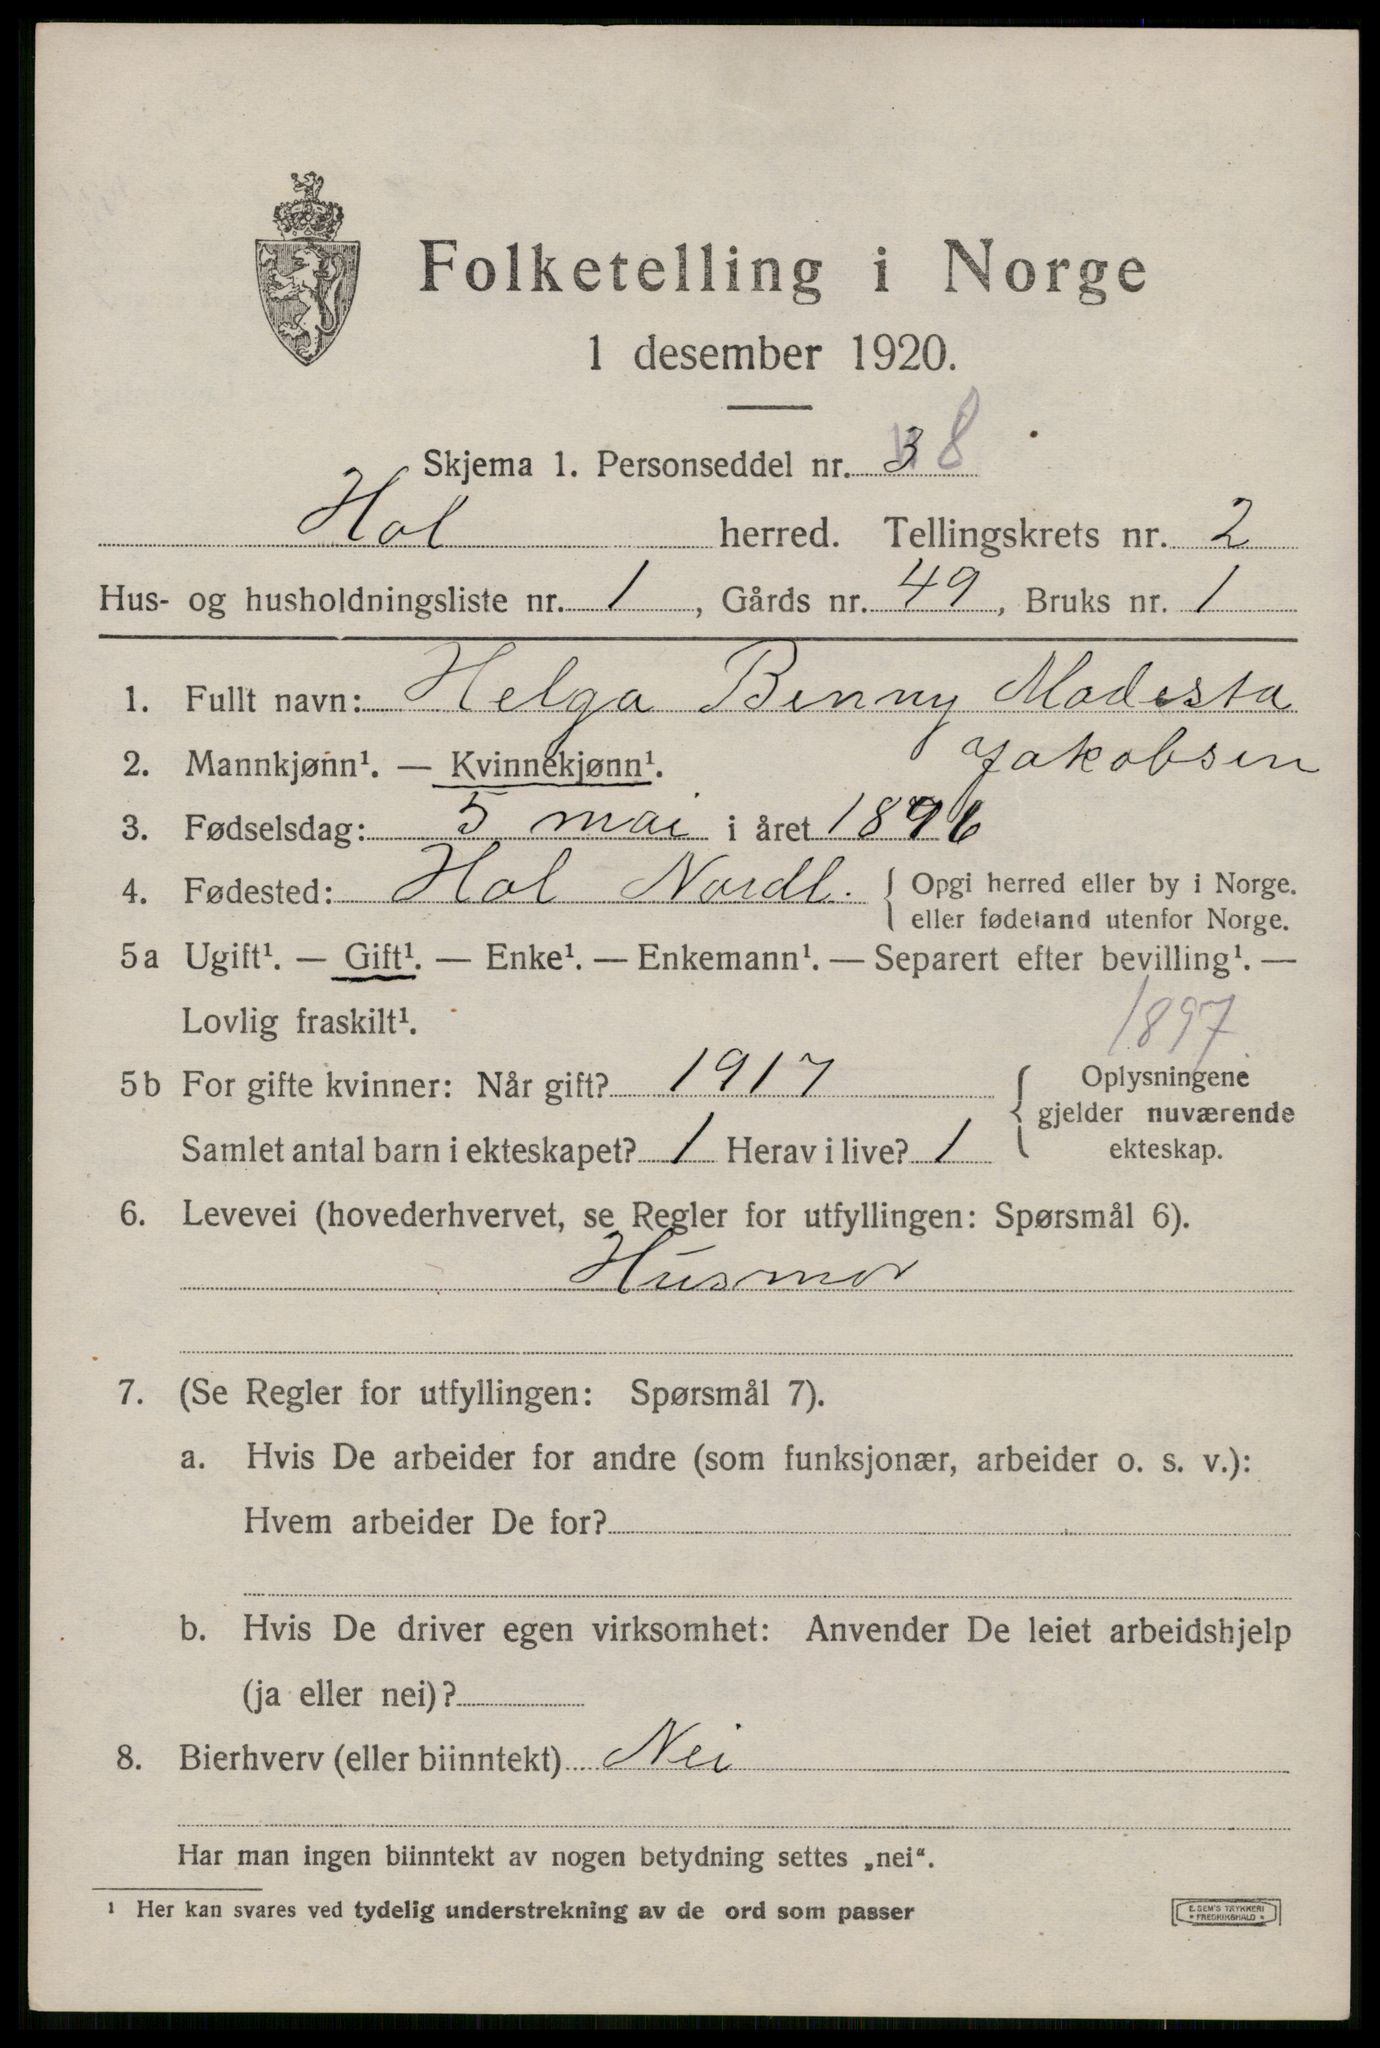 Folketelling i Norge
1 desember 1920.
Skjema 1. Personseddel nr. 3 8
Hol herred. Tellingskrets nr. 2
Hus- og husholdningsliste nr. 1, Gårds nr. 49, Bruks nr. 1
1. Fullt navn: Helga Benny Modesta
Jakobsen
2. Mannkjønn¹. — Kvinnekjønn¹.
3. Fødselsdag: 5 mai i året 1896
4. Fødested: Hol Nordl. { Opgi herred eller by i Norge.
eller fødeland utenfor Norge.
5a Ugift¹. — Gift¹. — Enke¹. — Enkemann¹. — Separert efter bevilling¹. —
Lovlig fraskilt¹.
1897
5b For gifte kvinner: Når gift? 1917
Samlet antal barn i ekteskapet? 1 Herav i live? 1
Oplysningene
gjelder nuværende
ekteskap.
6. Levevei (hovederhvervet, se Regler for utfyllingen: Spørsmål 6).
Husmor
7. (Se Regler for utfyllingen: Spørsmål 7).
a. Hvis De arbeider for andre (som funksjonær, arbeider o. s. v.):
Hvem arbeider De for?
b. Hvis De driver egen virksomhet: Anvender De leiet arbeidshjelp
(ja eller nei)?
8. Bierhverv (eller biinntekt) Nei
Har man ingen biinntekt av nogen betydning settes „nei“.
¹ Her kan svares ved tydelig understrekning av de ord som passer
E. SEM'S TRYKKERI
* FREDRIKSHALD *